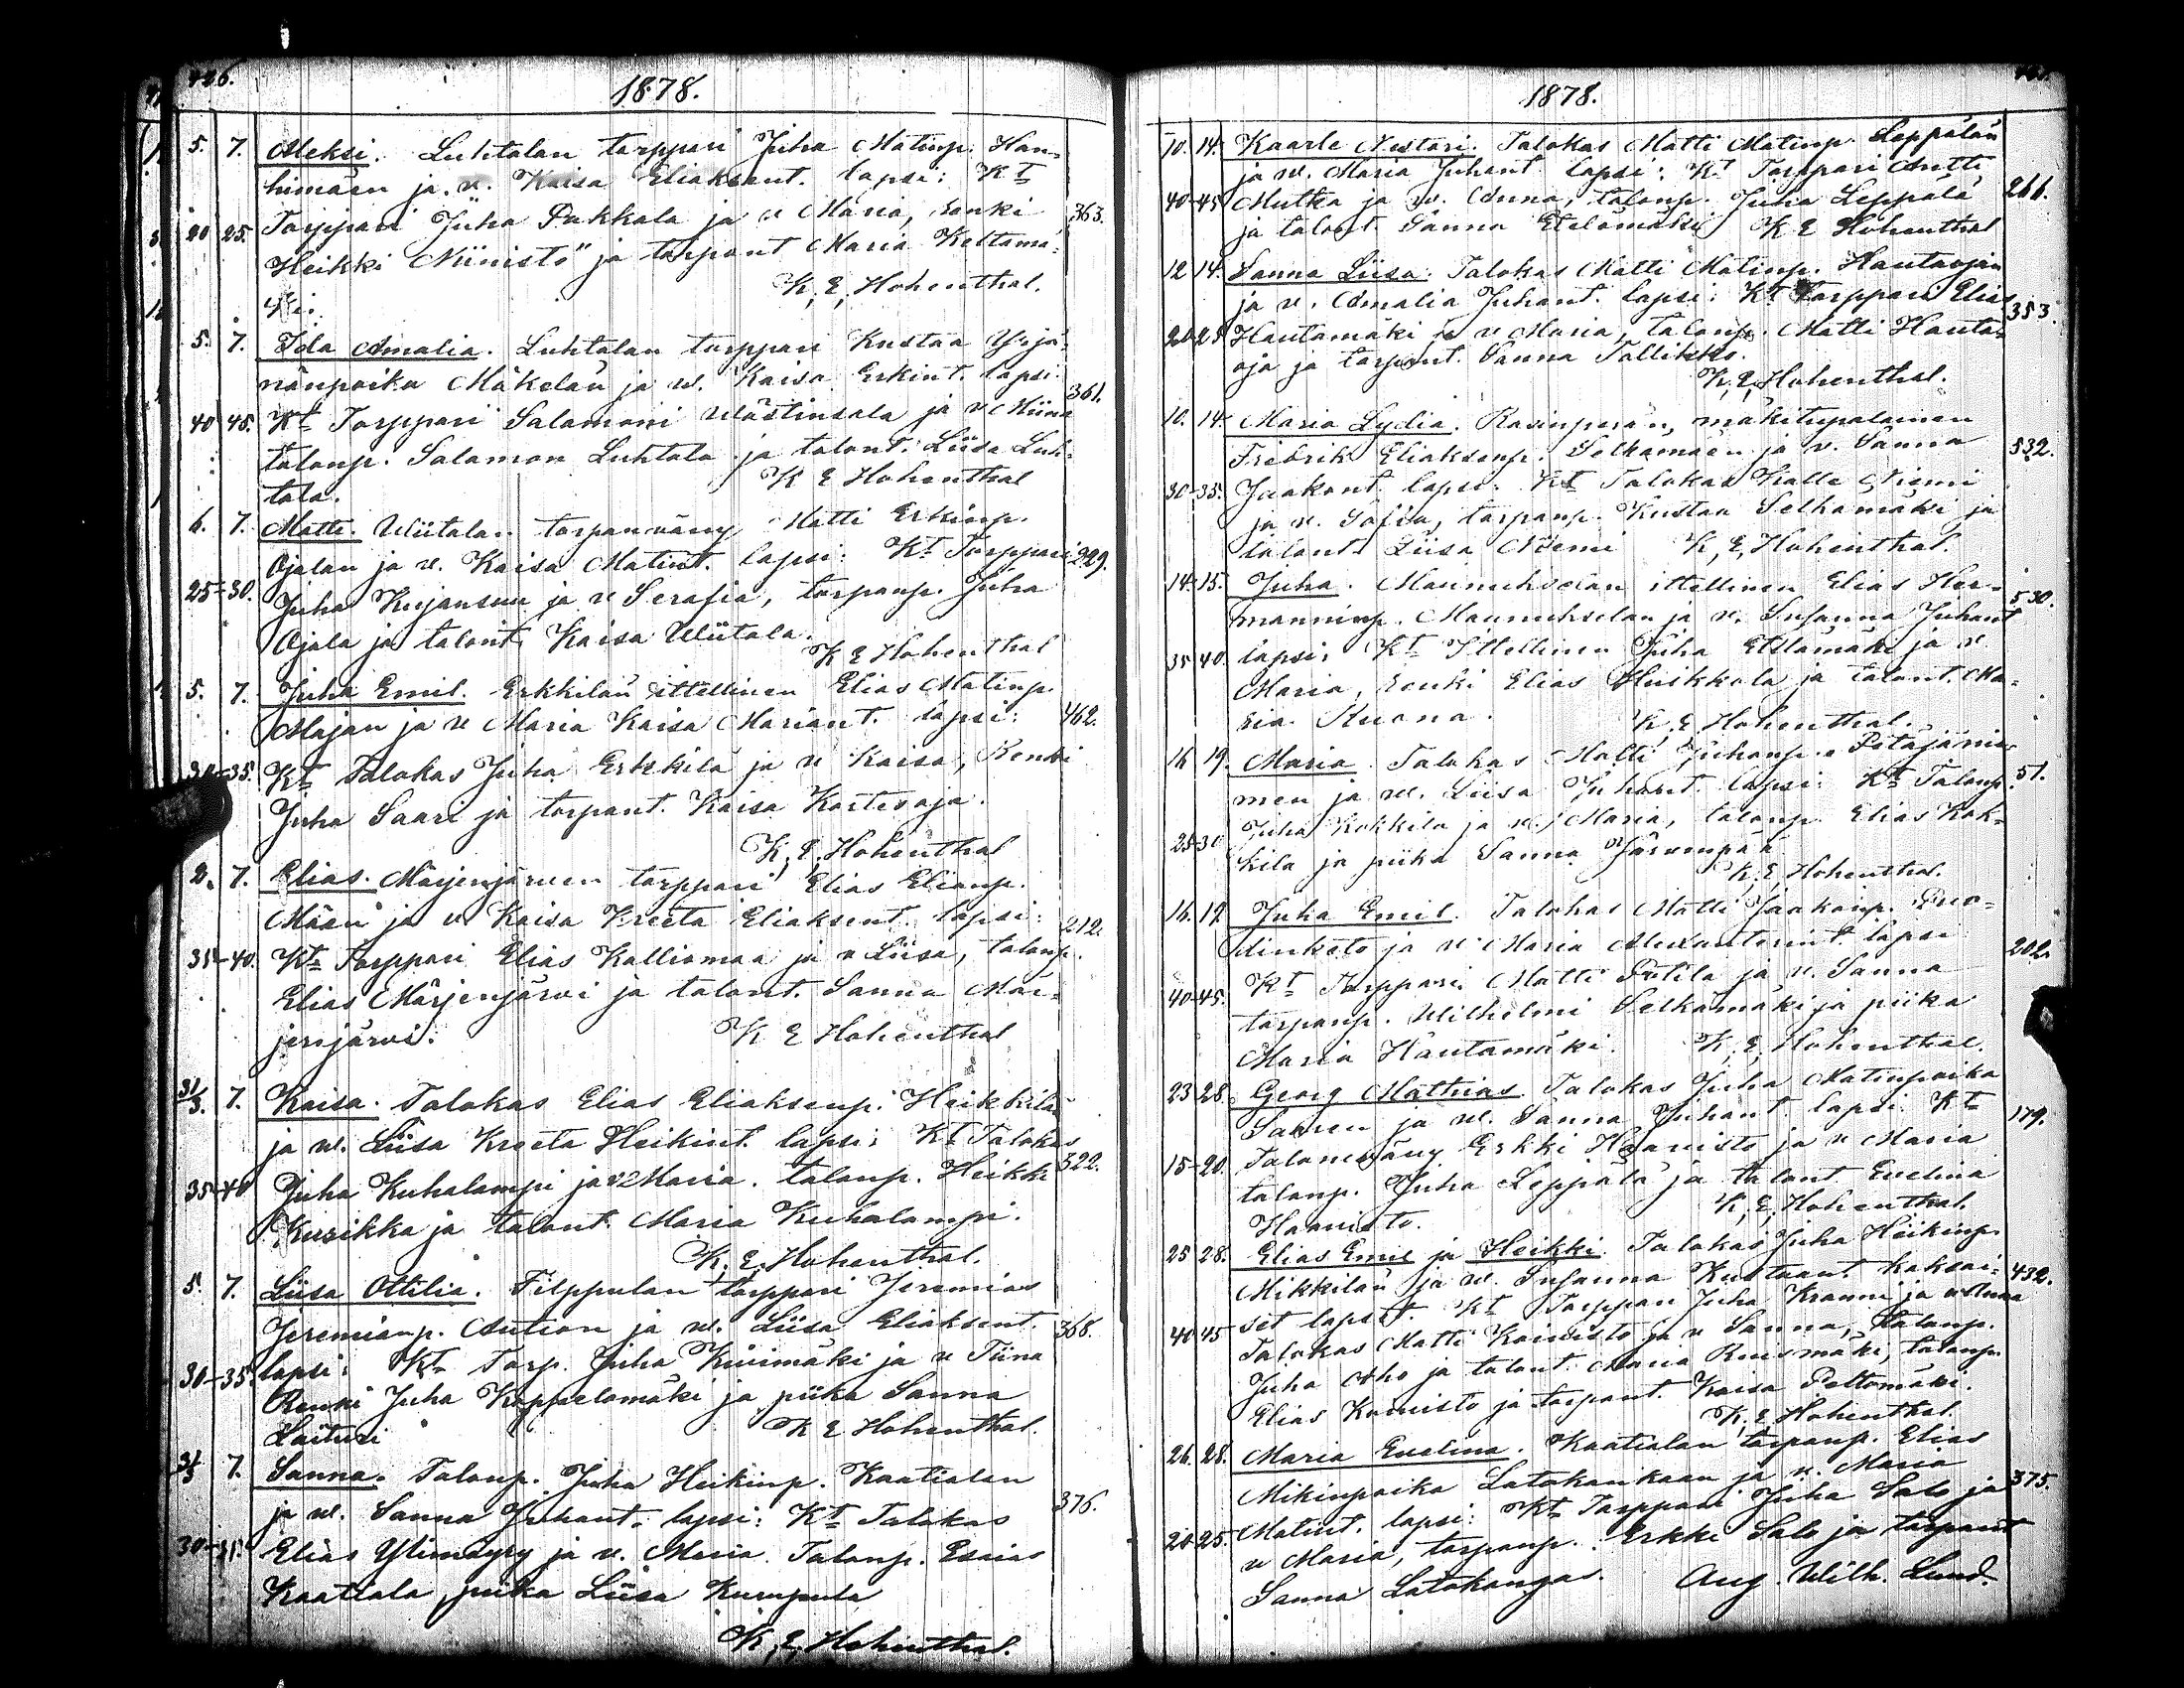 426.
1878.
5. 7. Aleksi. Luhtalan torppari Juha Matinp. Han-
himäen ja v. Kaisa Eliaksent. lapsi: Kt
20 25. Torppari Juha Pukkala ja v Maria, renki 363.
Heikki Niinistö ja torpant Maria Keltamä-
ki.
K, E, Hohenthal.
5. 7. Ida Amalia. Luhtalan torppari Kustaa Yrjä-
nänpoika Mäkelän ja v. Kaisa Erkint. lapsi. 361.
40 45. Kt Torppari Salamoni Wästinsala ja v Miina
talonp. Salamon Luhtala ja talont. Liisa Luh-
tala.
K E Hohenthal
6. 7. Matti. Wiitalan torpanväny Matti Erkinp.
Ojalan ja v. Kaisa Matint. lapsi: Kt Torppari 229.
25-30. Juha Kujansuu ja v Serafia, torpanp. Juha
Ojala ja talont. Kaisa Wiitala.
K E Hohenthal
5. 7. Juha Emil. Erkkilän ittellinen Elias Matinp.
Majan ja v Maria Kaisa Mariant. lapsi: 462.
30-35. Kt Talokas Juha Erkkilä ja v Kaisa, Renki
Juha Saari ja torpant. Kaisa Kortesoja.
K, E, Hohenthal
2. 7. Elias. Marjenjärven torppari Elias Elianp.
Mään ja v Kaisa Kreeta Eliaksent. lapsi: 212.
35-40. Kt Torppari Elias Kalliomaa ja v Liisa, talonp.
Elias Marjenjärvi ja talont. Sanna Mar-
jenjärvi.
K E Hohenthal
31/3. 7. Kaisa. Talokas Elias Eliaksenp. Heikkilän
ja v. Liisa Kreeta Heikint. lapsi: Kt Talokas
35-40 Juha Kuhalampi ja v Maria. talonp. Heikki 322.
Kusikka ja talont. Maria Kuhalampi.
K, E, Hohenthal.
5. 7. Liisa Ottilia. Filppulan torppari Jeremias
Jeremianp. Aution ja v. Liisa Eliaksent. 368.
30-35 lapsi: Kt Torp. Juha Kivimäki ja v Tiina
Renki Juha Koppelomäki ja piika Sanna
Laituri
K E Hohenthal.
31/3 7. Sanna. Talonp. Juha Heikinp. Kaatialan
ja v. Sanna Juhant. lapsi: Kt Talokas 376.
30-35. Elias Ylimäyry ja v. Maria. Talonp. Esaias
Kaatiala, piika Liisa Kumpula
K, E, Hohenthal.
1878.
10. 14. Kaarle Nestori. Talokas Matti Matinp. Leppälän
ja v. Maria Juhant. lapsi: Kt Torppari Antti
40-45 Mutka ja v. Anna, talonp. Juha Leppälä 266.
ja talont. Sanna Etelämäki K E Hohenthal
12 14. Sanna Liisa. Talokas Matti Matinp. Hautaojan
ja v. Amalia Juhant. lapsi: Kt Torppari Elias
20-25 Hautamäki ja v Maria, talonp. Matti Hauta- 353.
oja ja torpant. Sanna Tallikko.
K, E, Hohenthal.
10. 14. Maria Lydia. Rasinperän, mäkitupalainen
Fredrik Eliaksenp. Selkämäen ja v. Sanna 532.
30-35. Jaakont. lapsi. Kt Talokas Kalle Niemi
ja v. Sofia, torpanp. Kustaa Selkämäki ja
talont. Liisa Niemi K, E, Hohenthal.
14. 15. Juha. Maunukselan ittellinen Elias Her-
manninp. Maunukselan ja v. Susanna Juhant 530.
35 40. lapsi. Kt Ittellinen Juha Etelämäki ja v
Maria, renki Elias Huikkola ja talont. Ma-
ria Kuona.
K, E Hohenthal.
16 19. Maria Talokas Matti Juhanp. Petäjänie-
men ja v. Liisa Juhant. lapsi: Kt Talonp. 51.
25 30 Juha Kokkila ja v. Maria, talonp. Elias Kok-
kila ja piika Sanna Järvenpää
K, E, Hohenthal.
16. 19. Juha Emil. Talokas Matti Jaakonp. Puo-
dinketo ja v. Maria Aleksanterint. lapsi
40-45. Kt Torppari Matti Putila ja v. Sanna 202.
torpanp. Wilhelmi Selkämäki ja piika
Maria Hautamäki. K, E, Hohenthal.
23 28. Georg Mathias. Talokas Juha Matinpoika
Saaren ja v. Sanna Juhant. lapsi. Kt 179.
15-20. Talonväny Erkki Haavisto ja v Maria
talonp. Juha Leppälä ja talont Evelina
Haavisto. K, E, Hohenthal.
25 28. Elias Emil ja Heikki. Talokas Juha Heikinp.
Mikkilän ja v. Susanna Kustaant kaksoi- 432.
set lapset. Kt Torppari Juha Kranni ja v Anna
40 45 Talokas Matti Koivisto ja v Sanna, talonp.
Juha Aho ja talont Maria Ruusmäki, talonp.
Elias Koivisto ja torpant. Kaisa Peltomäki.
K, E Hohenthal.
26. 28. Maria Evelina. Kaatialan torpanp. Elias
Mikinpoika Latokankaan ja v. Maria
Matint. lapsi: Kt Torppari Juha Salo ja 375.
20-25. v Maria, torpanp. Erkki Salo ja torpant
Sanna Latokangas. Aug. Wilh. Lund.